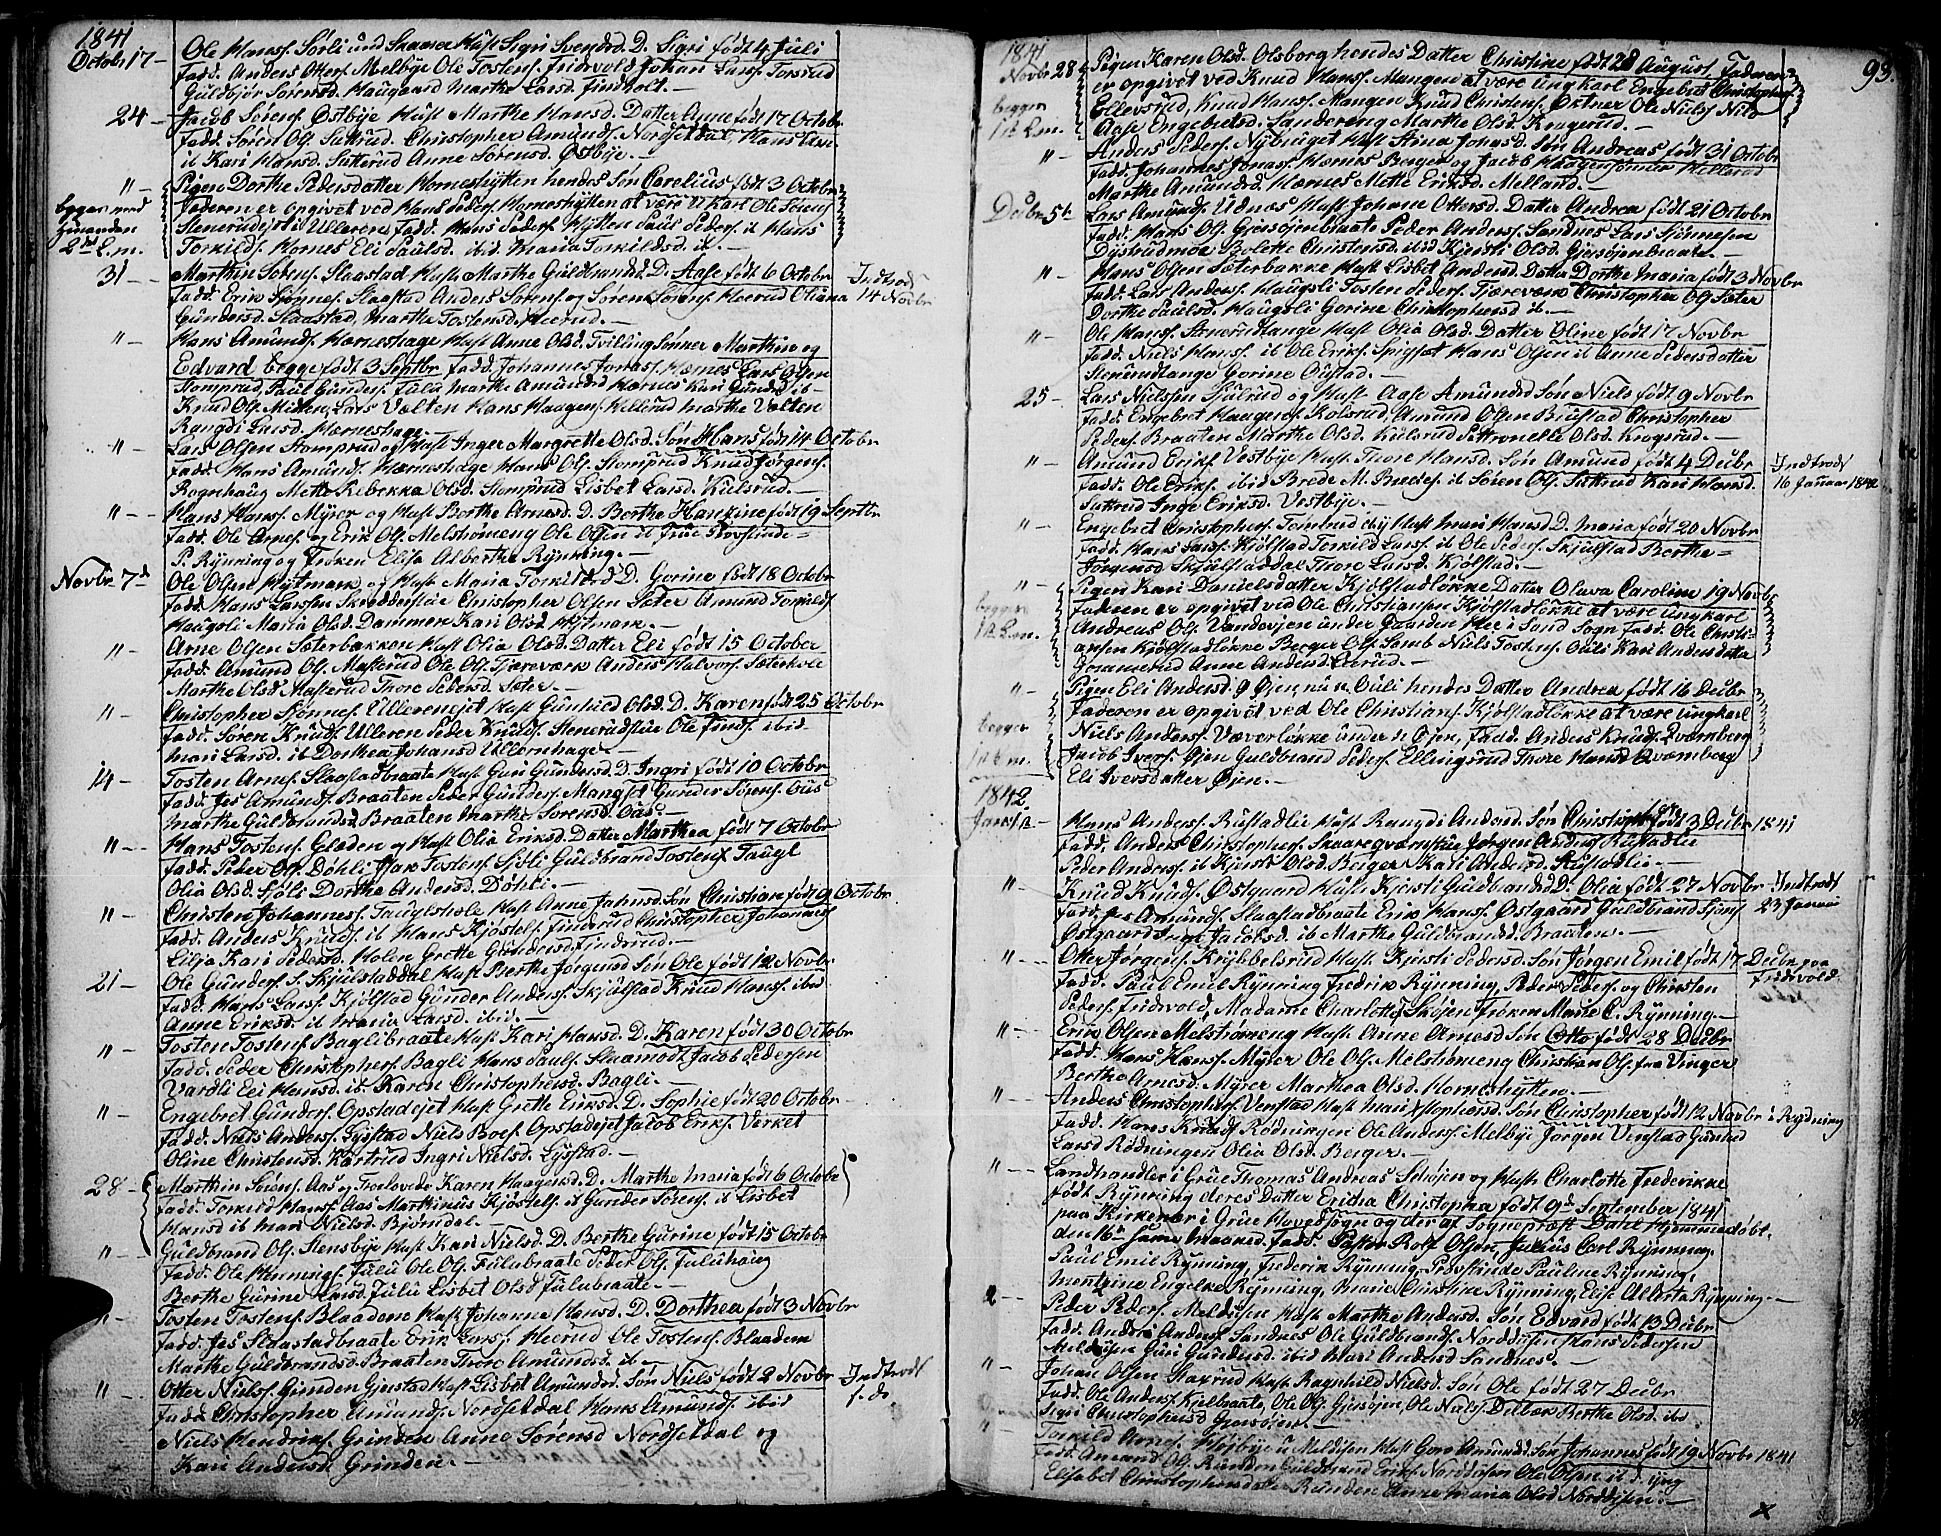 1841
Octobr 17 – Ole Hanss. Sørli und Skaarer Hust Sigri Svendsd. D. Sigri født 4 Juli
Fadd. Anders Otters. Melbye Ole Tostens. Fridvold Johan Larss. Torsrud
Guldbjør Sørensd. Haugaard Marthe Larsd. Findholt. –
24 – Jacob Sørens. Østbye Hust Marthe Hansd. Datter Anne født 17 Octobr
Fadd. Søren Ols. Sættrud. Christopher Amunds. Nordsetdal, Hans
it Kari Hansd. Satterud Anne Sørensd. Østbye. –
" – Pigen Dorthe Pedersdatter Horneshytten hendes Søn Carelius født 3 Octobr
Faderen er opgivet ved Hans Peders. Horneshytten at være U Karl Ole Sørens
Stenerudejet u Ulleren. Fadd. Hans Peders. Hytten Paul Peders. it Hans
Torkilds. Hornes Eli Paulsd. ibid. Maria Torkildsd. it. –
begges med
2det L.m.
31 – Marthin Sørens. Slaastad Hust. Marthe Guldbrandsd. D. Aase født 6 Octobr
Fadd. Erik Sjønnes. Slaastad Anders Sørens. og Søren Sørens. Heerud Oliana
Gundersd. Slaastad, Marthe Tostensd. Heerud. –
Indtrod
14 Novbr
" – Hans Amunds. Hærneshage Hust Anne Olsd. Tvilling Sønner Marthin og
Edvard begge født 3 Septbr, Fadd. Johannes Jonas. Hærnes Lars Olsen
Stomprud Paul Gunders. Fulu Marthe Amundsd Hærnes Kari Gundersd ib –
Knud Ols. Midten, Lars Vælten Hans Haagens. Kellerud Marthe Vælten
Rangdi Larsd. Hærneshage –
" – Lars Olsen Stomprud og Hust Inger Margrethe Olsd. Søn Hans født 14 Octobr
Fadd. Hans Amunds. Hærneshage Hans Ols. Stomprud Knud Jørgens.
Rognehaug Mette Rebekka Olsd. Stomprud Lisbet Larsd. Kulsrud. –
" – Hans Hanss. Myrer og Hust Berthe Arnesd. D. Berthe Hansine født 19 Septbr
Fadd. Ole Arnes. og Erik Ols. Melstrømeng Ole Olsen it Frue Provstinde =
P. Rynning og Frøken Elise Alberthe Rynning. –
Novbr 7de Ole Olsen Hytmark og Hust Maria Torkildsd D. Gorine født 18 Octobr
Fadd. Hans Larssen Skredderstue Christopher Olsen Sæter Amund Torkilds
Haugsli Maria Olsd. Dammen Kari Olsd. Hytmark. –
" – Arne Olsen Sæterbakken Hust Olia Olsd. Datter Eli født 15 October
Fadd. Amund Ols. Masterud Ole Ols. Tjæreværk Anders Halvors. Sæterhole
Marthe Olsd. Masterud Thore Pedersd. Sæter. –
" – Christopher Sjønnes. Ullerenejet Hust Gunhild Olsd. D. Karen født 25 Octobr
Fadd. Søren Knuds. Ulleren Peder Knuds. Stenerudstue Ole Finds. ibid
Mari Larsd. it Dorthea Johansd Ullernhage –
14 – Tosten Arnes. Slaastadbraate Hust Guri Gundersd. D. Ingri født 10 Octobr
Fadd. Jes Amunds. Braaten Peder Gunders. Mangset Gunder Sørens.
Marthe Guldbrandsd. Braaten Marthe Sørensd. –
" – Hans Tostens. Gladen og Hust Olia Eriksd. Datter Marthea født 7 Octobr
Fadd. Peder Ols. Døhli Jan Tostens. Sjøli Guldbrand Tostens. Taugl
Olia Olsd. Sjøli Dorthe Andersd. Døhli. –
" – Christen Johanness. Tauglshole Hust Anne Jahnsd. Søn Christian født 9 Octobr
Fadd. Anders Knuds. it Hans Kjøstels. Finderud Christopher Johannes
Lilja Kari Pedersd. Holen Grette Gundersd. Findsrud. –
21 – Ole Gunders. S. Skjulstaddal Hust Berthe Jørgensd Søn Ole født 12 Novbr.
Fadd. Hans Larss. Kjølstad Gunder Anders. Skjulstad Knud Hanss. ibid
Anne Eriksd. it Maria Larsd. ibid. –
" – Tosten Tostens. Baglibraate Hust. Kari Hansd. D. Karen født 30 Octobr
Fadd. Peder Christophers. Bagli Hans Pauls. Slaamodt Jacob Pedersen
Vardli Eli Hansd. it. Karen Christophersd. Bagli. –
" – Engebret Gunders. Opstadejet Hust Grette Eriksd. D. Sophie født 20 Octobr
Fadd. Niels Anders. Lysstad Niels Boes. Opstadejet Jacob Eriks. Verket
Oline Christensd. Kartrud Ingri Nielsd. Lysstad. –
28 – Marthin Sørens. Aas og Troelovede Karen Haagensd. D. Marthe Maria født 6 Octobr
Fadd. Torkild Hanss. Aas Marthinus Kjøstels. it Gunder Sørens. it Lisbet
Hansd it Mari Nielsd. Bjørndal. –
" – Guldbrand Ols. Stensbye Hust Kari Nielsd. D. Berthe Gurine født 15 Octobr
Fadd. Ole Hennings. Fulu Ole Ols. Fulubraate Peder Ols. Fuluhaug
Berthe Gurine Hansd. Fulu Lisbet Olsd Fulubraate. –
" – Tosten Tostens. Blaadene Hust Johanne Hansd. D. Dorthea født 3 Novbr
Fadd. Jes Slaastadbraate Erik Larss. Heerud Ole Tostens. Blaadene
Marthe Guldbrandsd. Braaten Thore Amundsd. it –
" – Otter Niels. Grinden Gjerstad Hust Lisbet Amundsd. Søn Niels født 2 Novbr
Fadd Christopher Amunds. Nordsetdal Hans Amunds. ibid
Niels Hendriks. Grinden Anne Sørensd Nordsetdal og
Kari Andersd Grinden. –
Indtrod
s. d.
93.
1841
Novbr 28 – Pigen Karen Olsd. Olsborg hendes Datter Christine født 28 August Faderen
er opgivet ved Knud Hanss. Mangen at være Ungkarl Engebret Christophers
Ellevsrud, Knud Hanss. Mangen Knud Christens. Østner Ole Niels. Nilo
Aase Engebretsd. Sandereng Marthe Olsd. Krogerud. –
begges
1ste L.m.
" – Anders Peders. Nybuiget Hust Stina Jonasd. Søn Andreas født 31 Octobr
Fadd. Johannes Jonass. Hærnes Berger og Jacob Haagensønner Kellerud
Marthe Amundsd. Hærnes Mette Eriksd. Melland. –
Decbr 5te Lars Amunds. Udnæs Hust Johane Ottersd. Datter Andrea født 21 Octobr
Fadd. Hans Ols. Gjersøjenbraate Peder Anders. Sandnes Lars Sjønnesen
Dystrudmoe Bolette Christensd. ibid Kjersti Olsd. Gjersøjenbraate. –
" – Hans Olsen Sæterbakke Hust Lisbet Andersd. Datter Dorthe Maria født 3 Novbr
Fadd. Lars Anders. Haugsli Tosten Peders. Tjæreværk Christopher Ols Sæter
Dorthe Paulsd. Haugsli Gorine Christophersd it. –
" – Ole Hanss. Stnerudtange Hust Olia Olsd. Datter Oline født 17 Novbr
Fadd. Niels Hanss. it Ole Eriks. Spigset Hans Olsen it Anne Pedersdatter
Stenerudtange Gorine Oustad. –
25 – Lars Nielssen Sjulrud og Hust Aase Amundsd Søn Niels født 9 Novbr
Fadd. Engebret Haagens. Kolsrud, Amund Olsen Brustad Christopher
Peders. Braaten Marthe Olsd. Kulsrud Pettronelle Olsd. Krogsrud. –
" – Amund Eriks. Vestbye Hust Thore Hansd. Søn Amund født 4 Decbr
Fadd. Ole Eriks. ibid Brede M. Bredes. it Søren Ols. Sættrud Kari Hansd.
Sættrud Inge Eriksd. Vestbye. –
Indtrod
16 Januar 1842
" – Engebret Christophers. Tomterud Hust Mari Hansd. D. Maria født 20 Novbr
Fadd. Hans Larss. Kjølstad Torkild Larss. it Ole Peders. Skjulstad Berthe =
Jørgensd Skjulstaddal Thore Larsd. Kjølstad. –
" – Pigen Kari Danielsdatter Kjølstadløkke Datter Oluva Caroline 19 Novbr
Faderen er opgivet ved Ole Christiansen Kjølstadløkke at være Ungkarl
Andreas Ols. Vandsøjen under Gaarden Hee i Sand Sogn Fadd. Ole Christi-
ansen Kjølstadløkke Berger Ols. Samb Niels Tostens. Ouls Kari Andersdatter
Goramerud Anne Andersd. Leerud. –
begges
1ste L.m.
" – Pigen Eli Andersd. Øjen, nu n. Ouli hendes Datter Andrea født 16 Decbr
Faderen er opgivet ved Ole Christians. Kjølstadløkke at være Ungkarl
Niels Anders. Væverløkke under n Øjen, Fadd. Anders Knuds. Qværnberg
Jacob Ivers. Øjen Guldbrand Peders. Ellingsrud Thore Hansd Qværnberg
Eli Iversdatter Øjen. –
begges
1ste L.m.
1842
Janr – Hans Anders. Rustadlie Hust Rangdi Andersd. Søn Christopher født 3 Decbr 1841
Fadd. Anders Christophers. Skaareqværnstue Jørgen Anders. Rustadlie
Peder Anders. it Kjersti Olsd. Berger Kari Andersd. Rustadlie. –
" – Knud Knuds. Østgaard Hust Kjersti Guldbrandsd D. Olia født 27 Novbr
Fadd. Jes Amunds. Slaastadbraate Erik Hanss. Østgaard Guldbrand Sjøns.
Østgaard Inge Jacobsd. it Marthe Guldbrandsd. Braaten. –
Indtrod
23 Januar
" – Otter Jørgens. Krybbelsrud Hust Kjersti Pedersd. Søn Jørgen Emil født 17 Decbr paa
Fridsvold.
Fadd. Paul Emil Rynning Fredrik Rynning, Peder Peders. og Christen
Peders. Fridsvold, Madame Charlotte Skøjen Frøken Marie C. Rynning. –
" – Erik Olsen Melstrømeng Hust Anne Arnesd Søn Otto født 28 Decbr
Fadd. Hans Hanss. Myrer Ole Ols. Melstrømeng Christian Ols. fra Vinger
Berthe Arnesd. Myrer Marthea Olsd. Horneshytten. –
" – Anders Christophers Venstad Hust Mari Xstophersd. Søn Christopher født 12 Novbr i Rydning
Fadd. Hans Knuds Rødningen Ole Anders. Melbye Jørgen Venstad Gunild
Larsd Rødningen Olia Olsd. Berger. –
" – Landhandler i Grue Thomas Andreas Schøjen og Hust Charlotte Frederikke
født Rynning deres Datter Ericha Christopha født 9de September 1841
paa Kirkenær i Grue Hovedsogn og der af Sogneprest Dahl Hjemmedøbt.
den 16de samme Maaned. Fadd. Pastor Rolf Olsen, Julius Carl Rynning,
Paul Emil Rynning, Frederik Rynning, Provstinde Pauline Rynning,
Mentzine Engelke Rynning, Marie Christine Rynning, Elise Alberta Rynning –
2 – Peder Peders. Meldisen Hust. Marthe Andersd. Søn Edvard født 13 Decbr
Fadd. Andre Anders. Sandnes Ole Guldbrands. Norddisen Hans Pedersen
Meldisen Guri Gundersd. ibid Mari Andersd Sandnes. –
" – Johan Olsen Staxrud Hust. Ragnhild Nielsd. Søn Ole født 27 Decbr
Fadd. Ole Anders. Kjelbraate, Ole Ols. Gjersøjen, Ole Niels. Delbæk Berthe Olsd. ibid
Sigri Christophersd Gjersøjen. –
" Torkild Arnes. Hojbye u Meldisen Hust Goro Amundsd. Søn Johannes født 19 Novbr 1841
Fadd. Amund Ols. Runden Guldbrand Eriks. Norddisen Ole Olsen it d. yng
Elisabet Christophersdatter Runden Anne Maria Olsd Norddisen. –